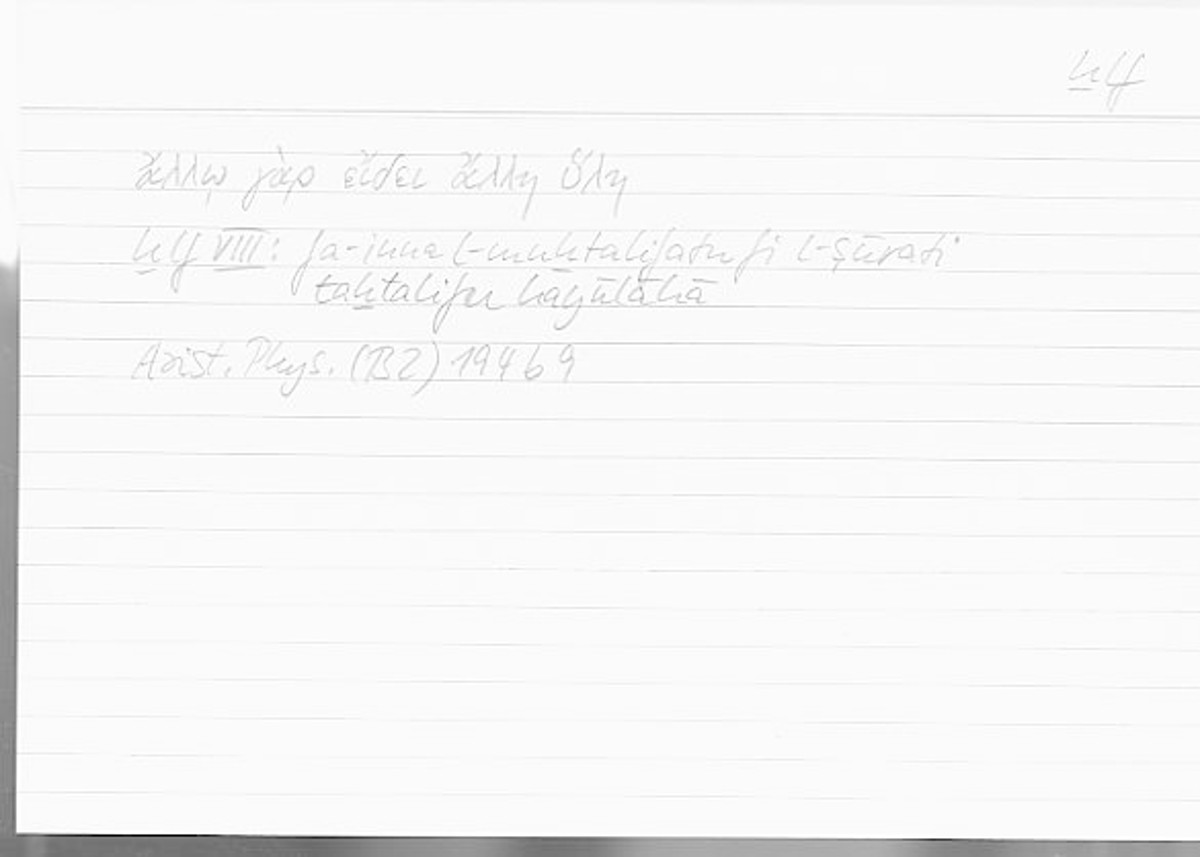 ḫlf
ἄλλῳ γὰρ εἴδει ἄλλη ὕλη
ḫlf VIII: fa-inna l-muḫtalifata fī l-ṣūrati
taḫtalifu hāyūlāhā
Arist. Phys. (B2) 194 b 9